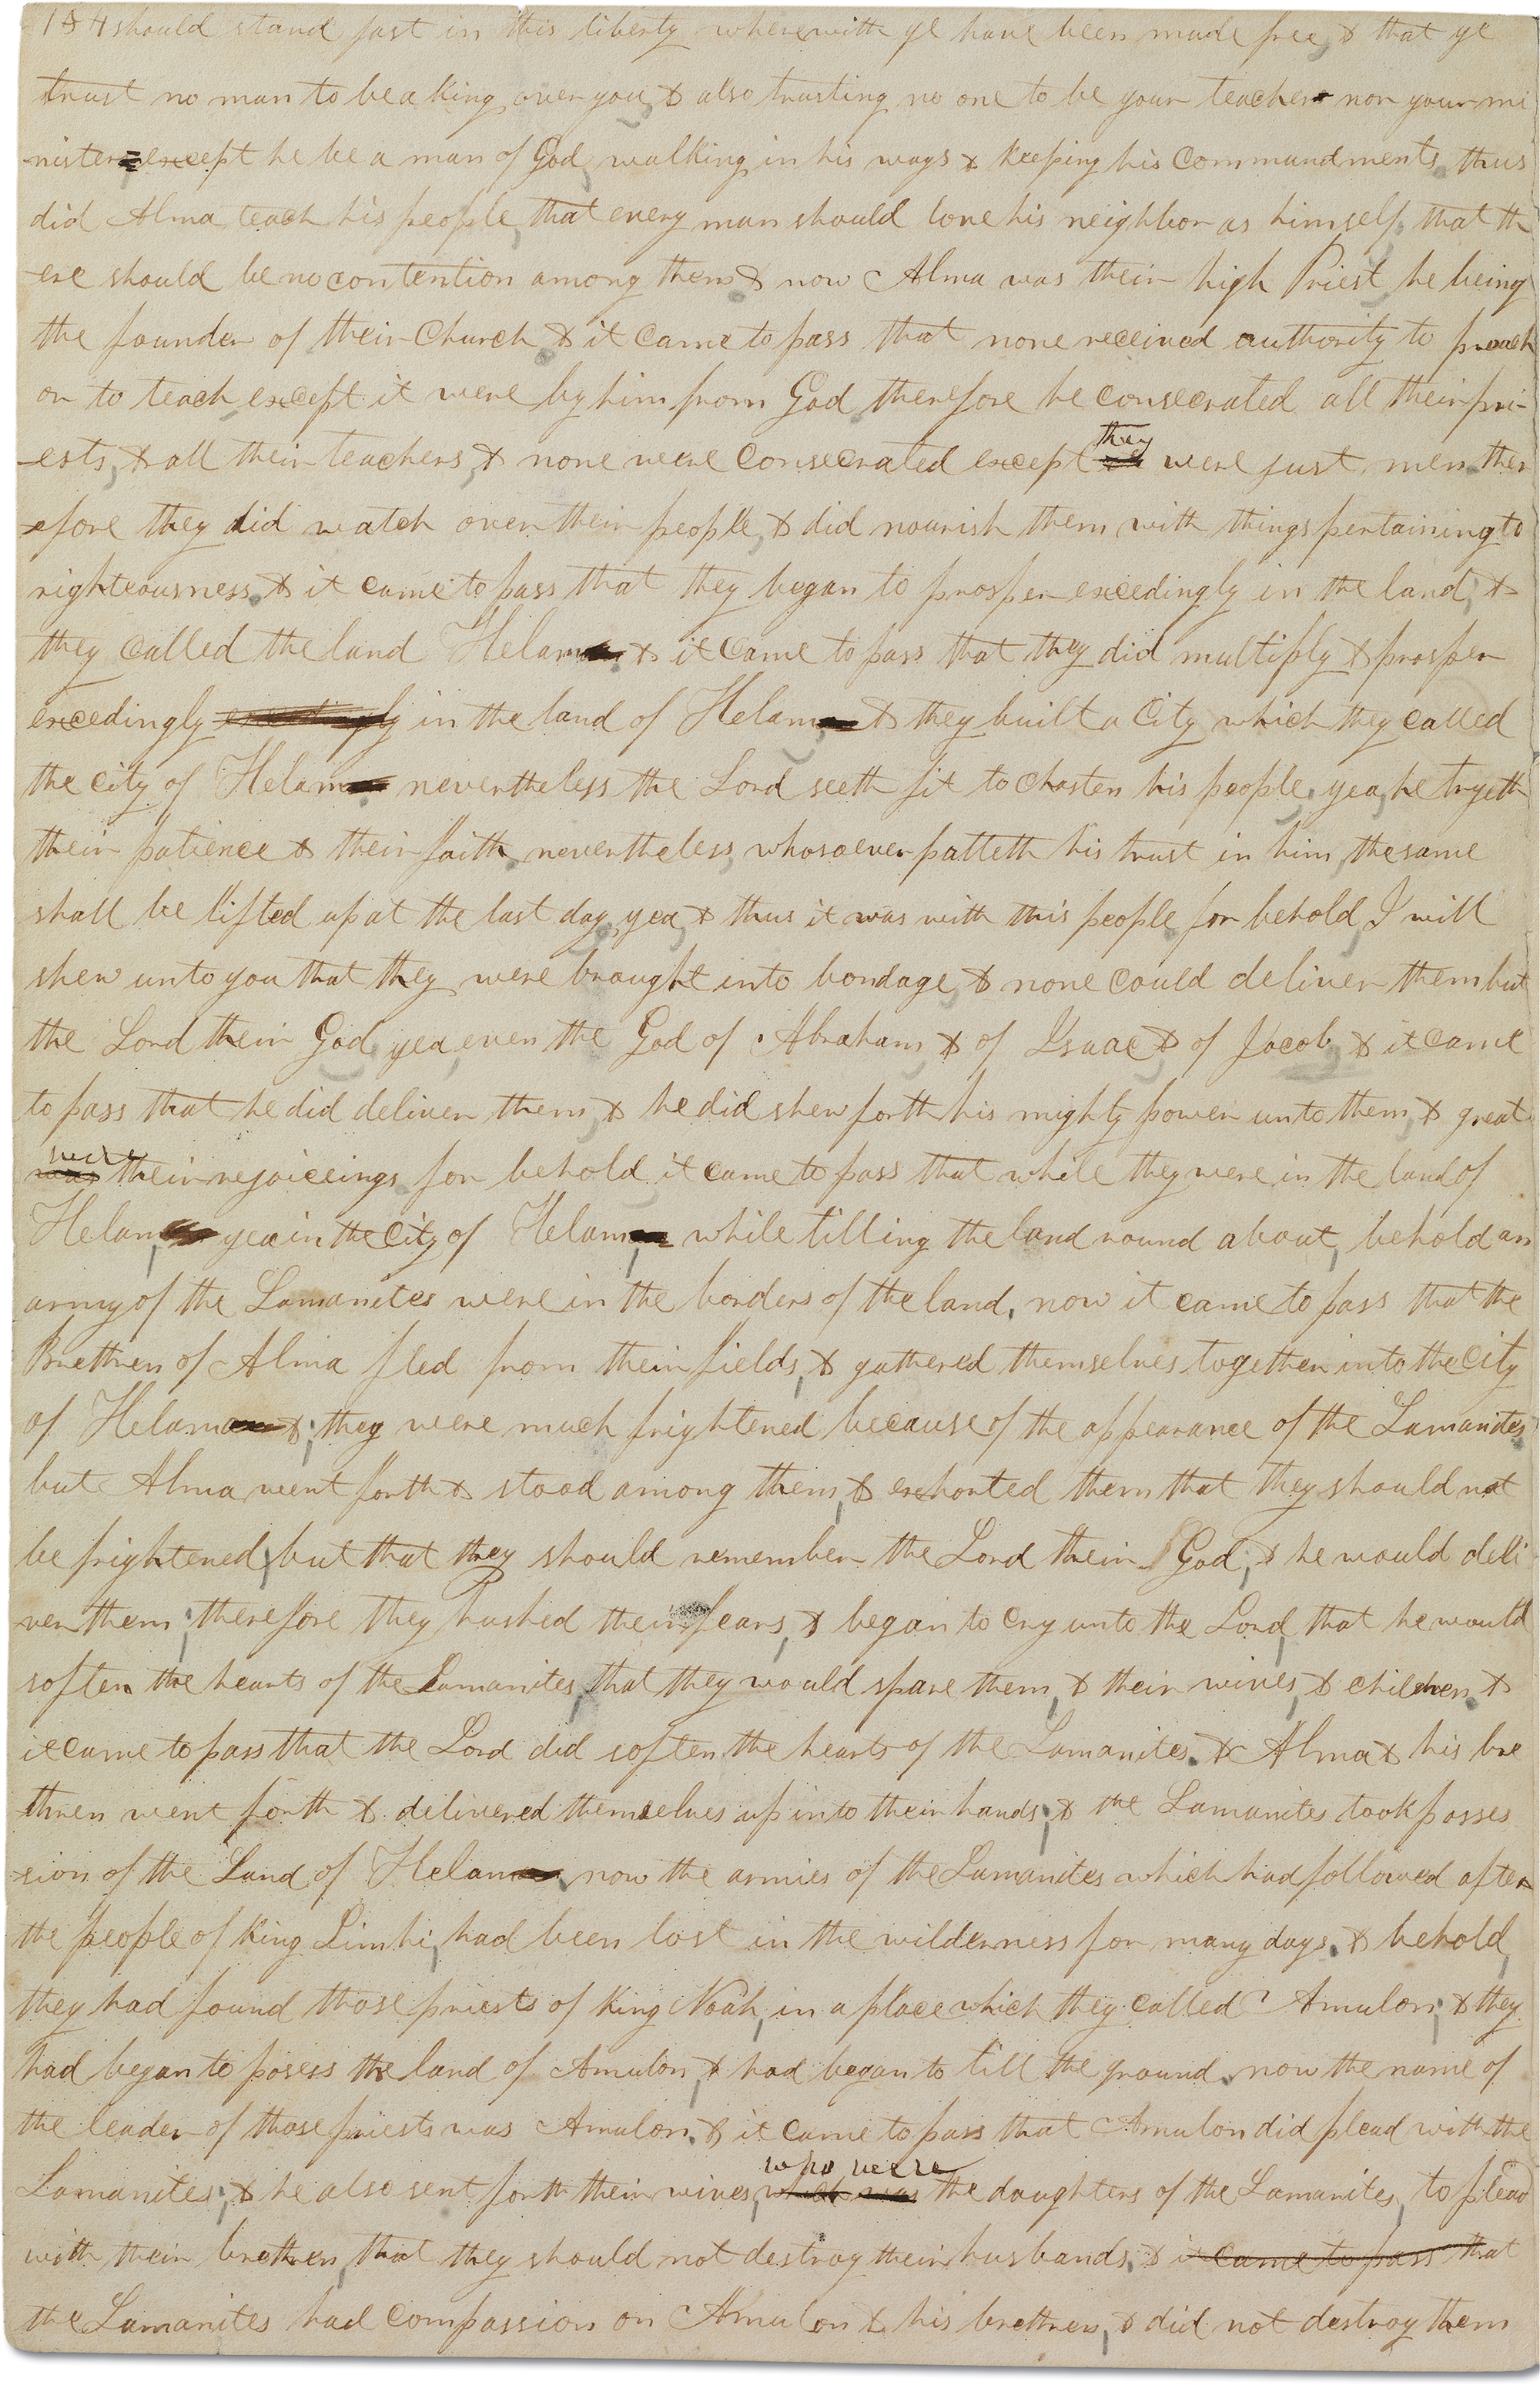 154 should stand fast in this liberty wherewith ye have been made free, & that ye
trust no man to be a king over you, & also trusting no one to be your teacher nor your mi
nister, except he be a man of God, walking in his ways & keeping his commandments. thus
did Alma teach his people, that every man should love his neighbor as himself, that th
-ere should be no contention among them. & now Alma was their high Priest, he being
the founder of their Church. & it came to pass that none received authority to preach
or to teach, except it were by him from God. therefore he consecrated all their pri-
-ests, & all their teachers, & none were consecrated except they were just men. ther
-efore they did watch over their people, & did nourish them with things pertaining to
righteousness. & it came to pass that they began to prosper exceedingly in the land; &
they called the land Helam. & it came to pass that they did multiply & prosper
exceedingly exceedingly in the land of Helam & they built a City which they called
the city of Helam nevertheless the Lord seeth fit to chasten his people, yea, he tryeth
their patience & their faith, nevertheless, whosoever putteth his trust in him, the same
shall be lifted up at the last day, yea, & thus it was with this people. for behold, I will
shew unto you that they were brought into bondage, & none could deliver them but
the Lord their God, yea, even the God of Abraham & of Isaac & of Jacob. & it came
to pass that he did deliver them, & he did shew forth his mighty power unto them, & great
was were their rejoiceings. for behold it came to pass that while they were in the land of
Helam, yea in the City of Helam, while tilling the land round about, behold an
army of the Lamanites were in the borders of the land. now it came to pass that the
Brethren of Alma fled from their fields, & gathered themselves together into the City
of Helam &; they were much frightened because of the appearance of the Lamanites
but Alma went forth & stood among them, & exhorted them that they should not
be frightened, but that they should remember the Lord their God, & he would deli
ver them; therefore they hushed their fears, & began to cry unto the Lord, that he would
soften the hearts of the Lamanites, that they would spare them, & their wives, & children. &
it came to pass that the Lord did soften the hearts of the Lamanites. & Alma & his bre
thren went forth & delivered themselves up into their hands; & the Lamanites took posses
-sion of the Land of Helam. now the armies of the Lamanites which had followed after
the people of King Limhi, had been lost in the wilderness for many days. & behold,
they had found those priests of King Noah, in a place which they called Amulon; & they
had began to posess the land of Amulon, & had began to till the ground. now the name of
the leader of those priests was Amulon. & it came to pass that Amulon did plead with the
Lamanites; & he also sent forth their wives, which was who were the daughters of the Lamanites, to plead
with their brethren, that they should not destroy their husbands. & it came to pass that
the Lamanites had compassion on Amulon & his brethren, & did not destroy them